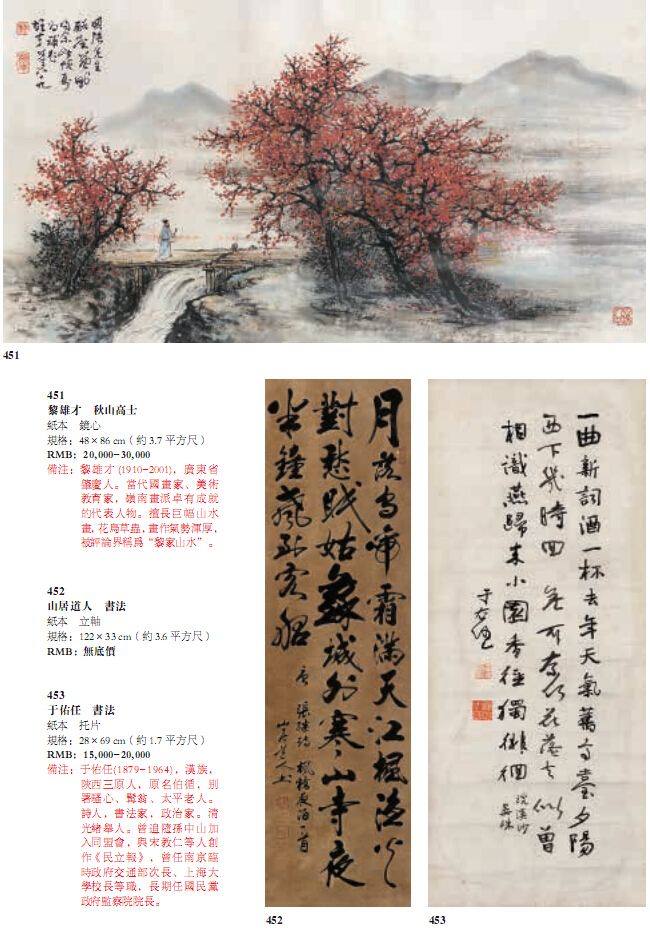 451
451
黎雄才　秋山高士
紙本　鏡心
規格：48×86 cm（約3.7平方尺）
RMB：20,000-30,000
備注：黎雄才(1910-2001)，廣東省
肇慶人。當代國畫家、美術
教育家，嶺南畫派卓有成就
的代表人物。擅長巨幅山水
畫，花鳥草蟲，畫作氣勢渾厚，
被評論界稱爲“黎家山水”。
452
山居道人　書法
紙本　立軸
規格：122×33 cm（約3.6平方尺）
RMB：無底價
453
于佑任　書法
紙本　托片
規格：28×69 cm（約1.7平方尺）
RMB：15,000-20,000
備注：于佑任(1879-1964)，漢族，
陝西三原人，原名伯循，別
署騷心、髯翁、太平老人。
詩人，書法家，政治家。清
光緒舉人。曾追隨孫中山加
入同盟會，與宋教仁等人創
作《民立報》，曾任南京臨
時政府交通部次長、上海大
學校長等職，長期任國民黨
政府監察院院長。
月落烏啼霜滿天江楓漁火
對愁眠姑蘇城外寒山寺夜
半鐘聲到客船
唐　張繼詩　楓橋夜泊一首
山居道人書
452
一曲新詞酒一杯去年天氣舊亭臺夕陽
西下幾時回　無可奈何花落去似曾
相識燕歸來小園香徑獨徘徊
浣溪沙
晏殊
于右任
453